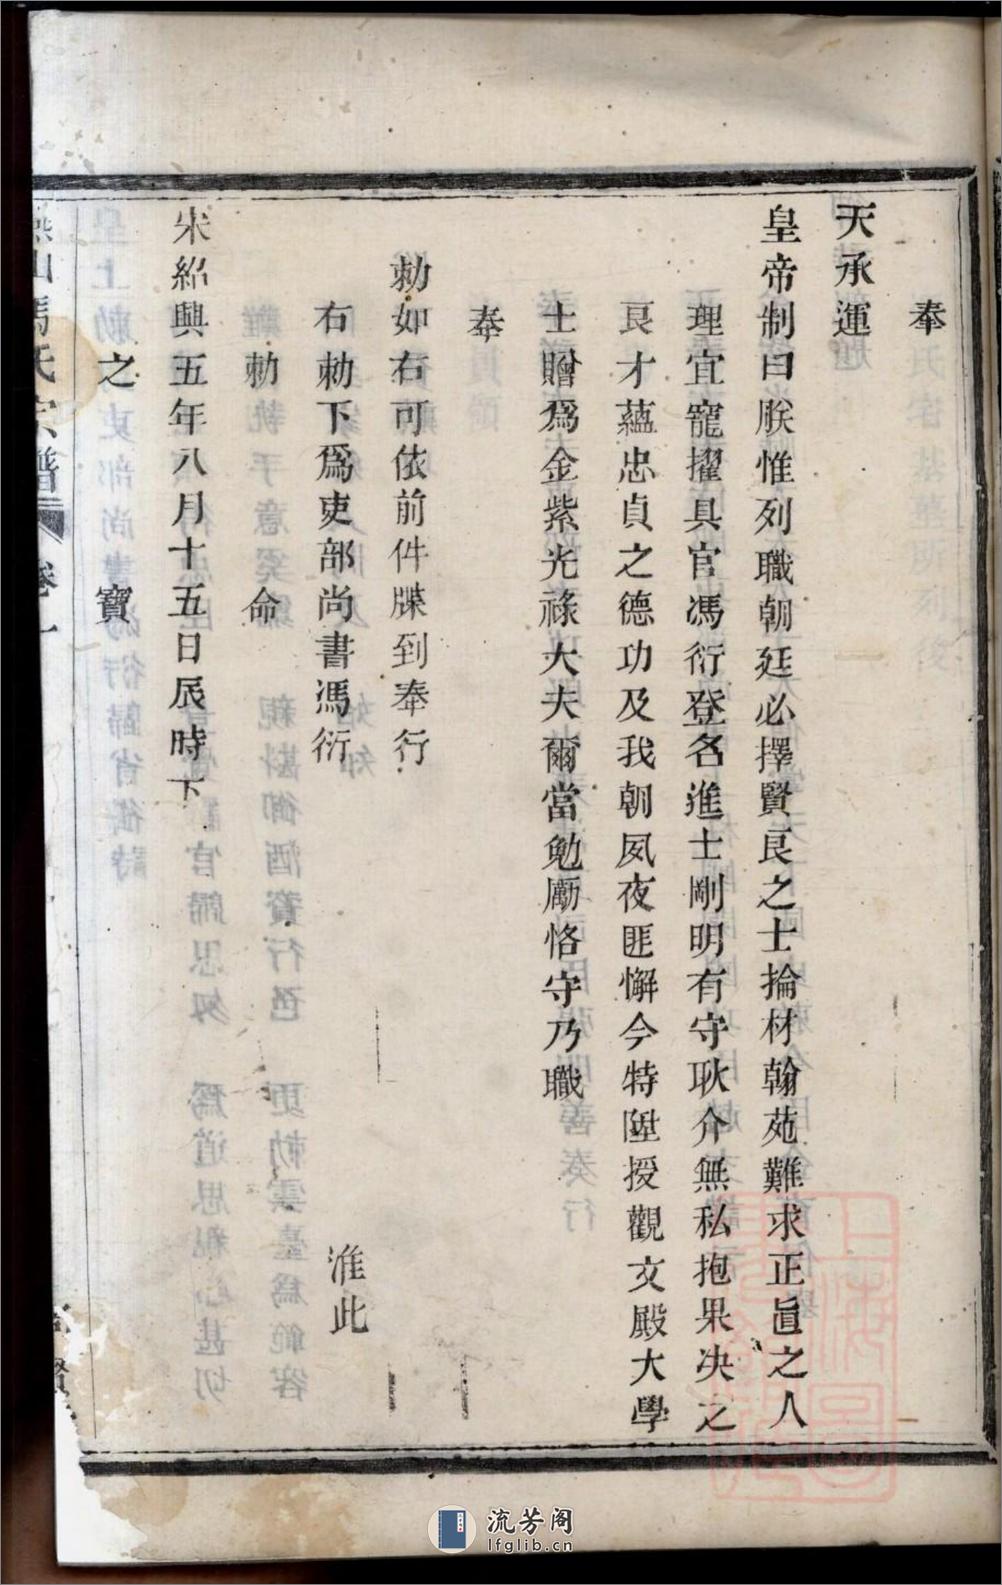 奉
天承運
皇帝制曰朕惟列職朝廷必擇賢良之士掄材翰苑難求正直之人
理宜寵擢具官馮衍登名進士剛明有守耿介無私抱果决之
良才蘊忠貞之德功及我朝夙夜匪懈今特陞授觀文殿大學
士贈爲金紫光祿大夫爾當勉勵恪守乃職
奉
勅如右可依前件牒到奉行
右勅下爲吏部尚書馮衍 准此
勅 命
宋紹興五年八月十五日辰時下
之 寶
山馮氏宗譜 卷一
流芳阁
lfglib.cn